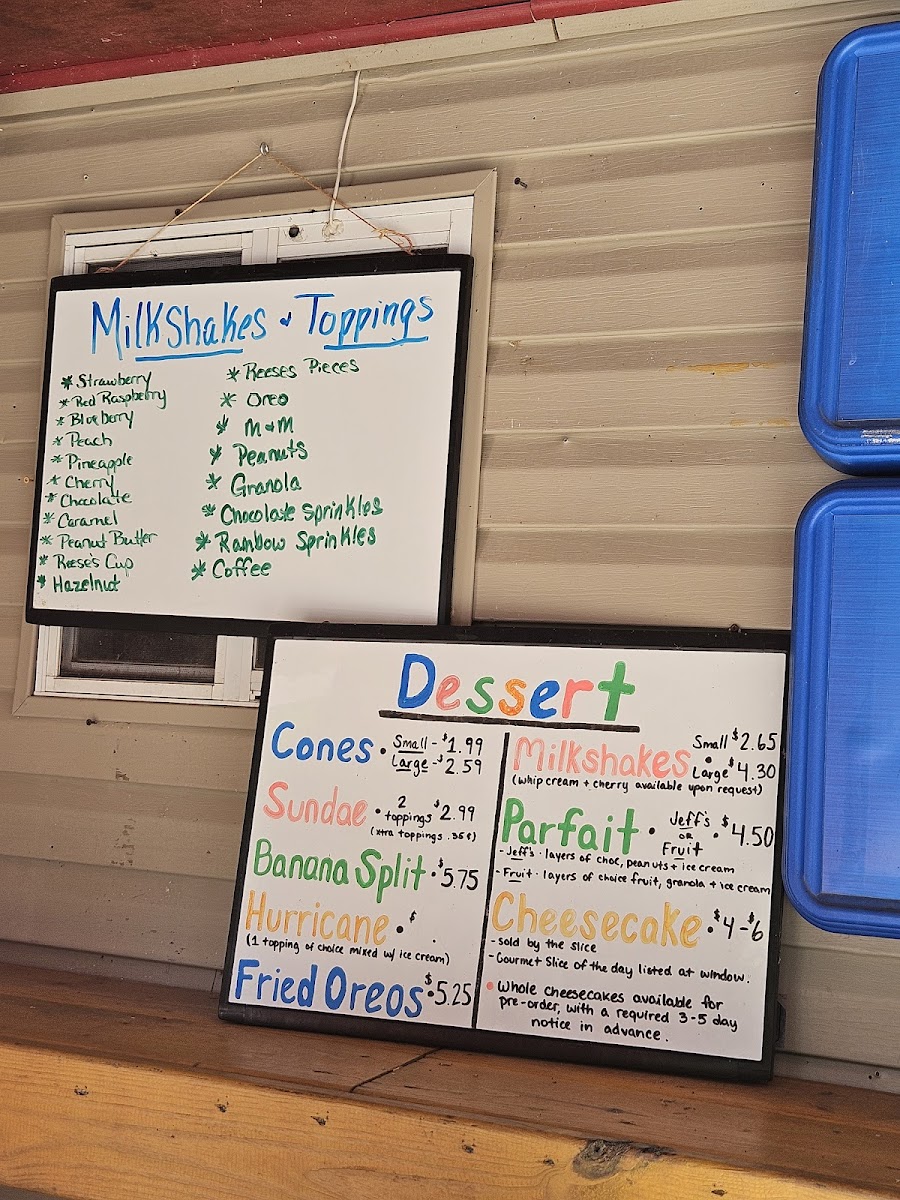 Milkshakes & Toppings
* Strawberry
* Red Raspberry
* Blueberry
* Peach
* Pineapple
* Cherry
* Chocolate
* Caramel
* Peanut Butter
* Reese's Cup
* Hazelnut
* Reeses Pieces
* Oreo
* M&M
* Peanuts
* Granola
* Chocolate Sprinkles
* Rainbow Sprinkles
* Coffee
Dessert
Cones • Small - $1.99
Large - $2.59
Sundae • 2 toppings $2.99
(xtra toppings .35¢)
Banana Split • $5.75
Hurricane • $ .
(1 topping of choice mixed w/ ice cream)
Fried Oreos • $5.25
Milkshakes Small $2.65
• Large $4.30
(whip cream + cherry available upon request)
Parfait • Jeff's or Fruit • $4.50
- Jeff's · layers of choc, peanuts + ice cream
- Fruit · layers of choice fruit, granola + ice cream
Cheesecake • $4 - $6
- sold by the slice
- Gourmet Slice of the day listed at window.
• Whole cheesecakes available for
pre-order, with a required 3-5 day
notice in advance.